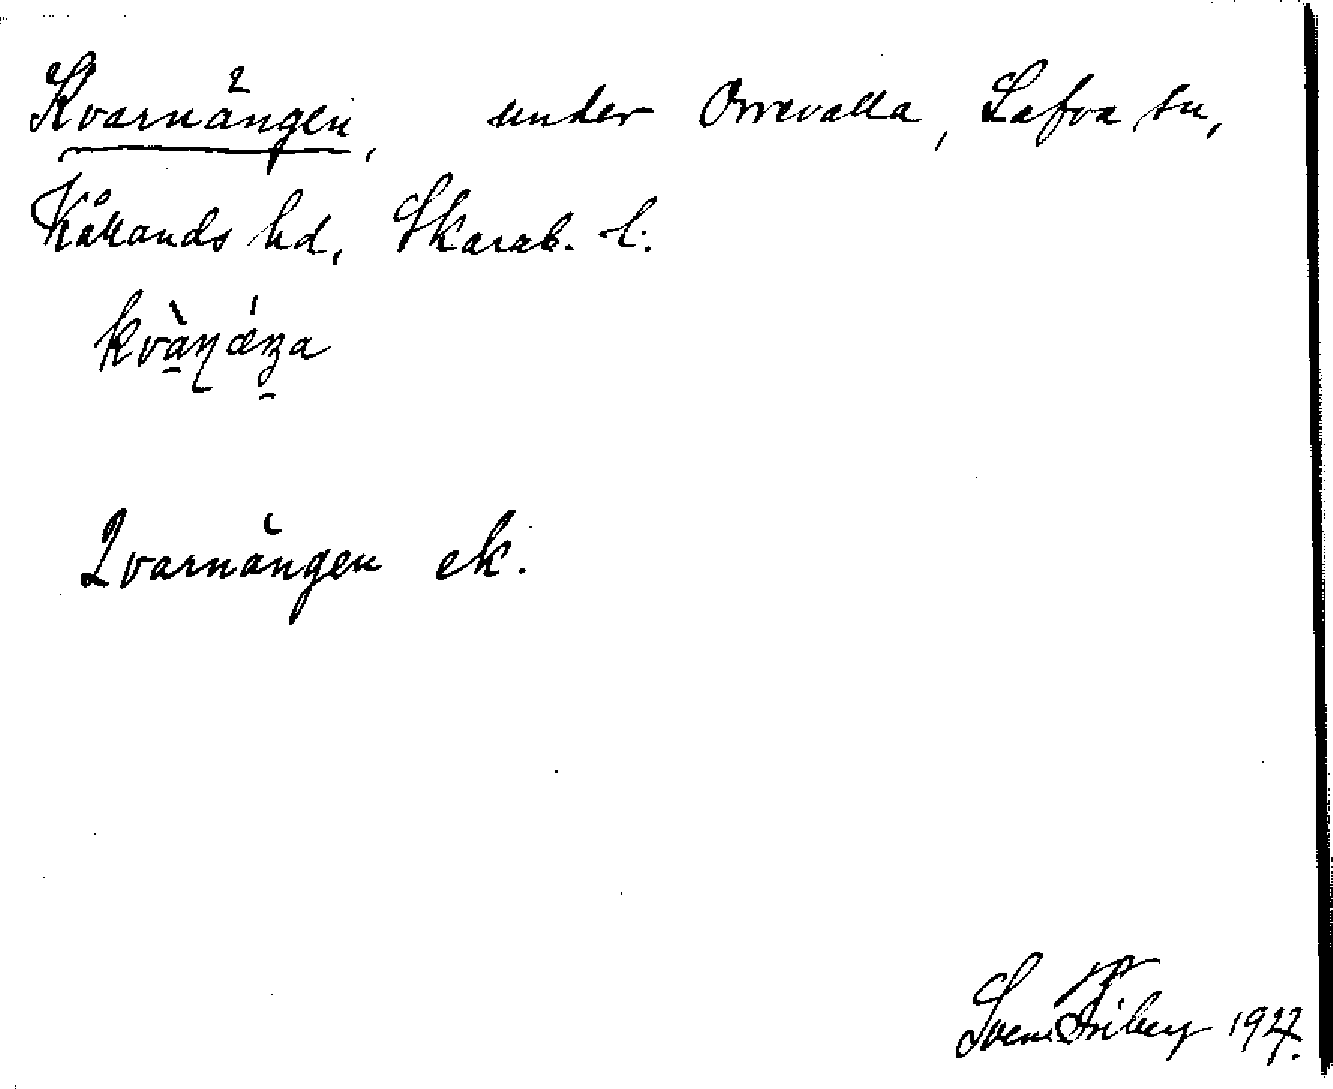 Kvarnängen, under Orrevalla, Lafva sn,
Kållands hd, Skarab. l.
kvàṇǽŋa
Qvarnängen ek.
Sven Friberg 1927.